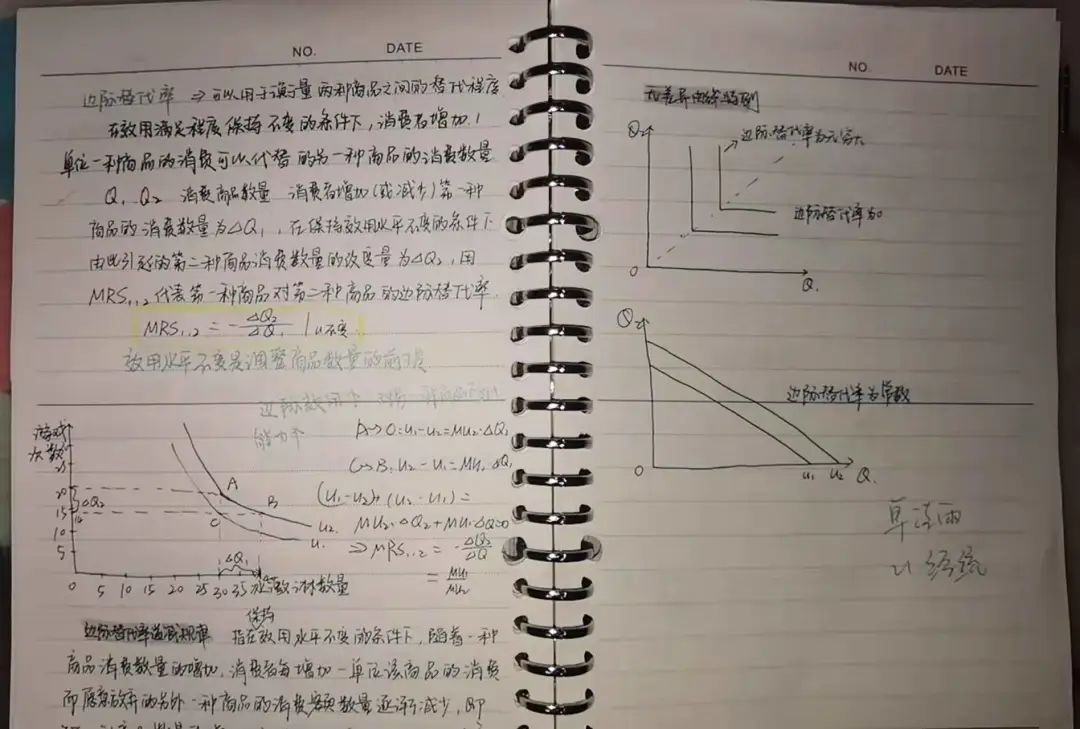 NO. DATE
边际替代率 ⇒ 可以用于演示量两种商品之间的替代程度
在效用满足程度保持不变的条件下,消费者增加1
单位一种商品的消费可以代替的另一种商品的消费数量
Q₁ Q₂ 消费商品数量 消费者增加(或减少)第一种
商品的消费数量为△Q₁,在保持效用水平不变的条件下
由此引起的第二种商品消费数量的改变量为△Q₂,用
MRS₁,₂代表第一种商品对第二种商品的边际替代率
MRS₁,₂ = -△Q₂/△Q₁ |u不变
效用水平不变是调整商品数量的前提
边际效用
游戏
次数
25
20
15
10
5
△Q₂
A
B
C
U₂
U₁
△Q₁
0 5 10 15 20 25 30 35
数量
A→C:U₁-U₂=MU₂·△Q₂
C→B:U₂-U₁=MU₁·△Q₁
(U₁-U₂)+(U₂-U₁)=
MU₂·△Q₂+MU₁·△Q₁=0
⇒MRS₁,₂ = -△Q₂/△Q₁
= MU₁/MU₂
保持
边际替代率递减规律 指在效用水平不变的条件下,随着一种
商品消费数量的增加,消费者每增加一单位该商品的消费
而愿意放弃的另外一种商品的消费数量逐渐减少,即
NO. DATE
无差异曲线特例
Q₂
边际替代率为无穷大
边际替代率为0
0
Q₁
Q₂
边际替代率为常数
0 U₁ U₂ Q₁